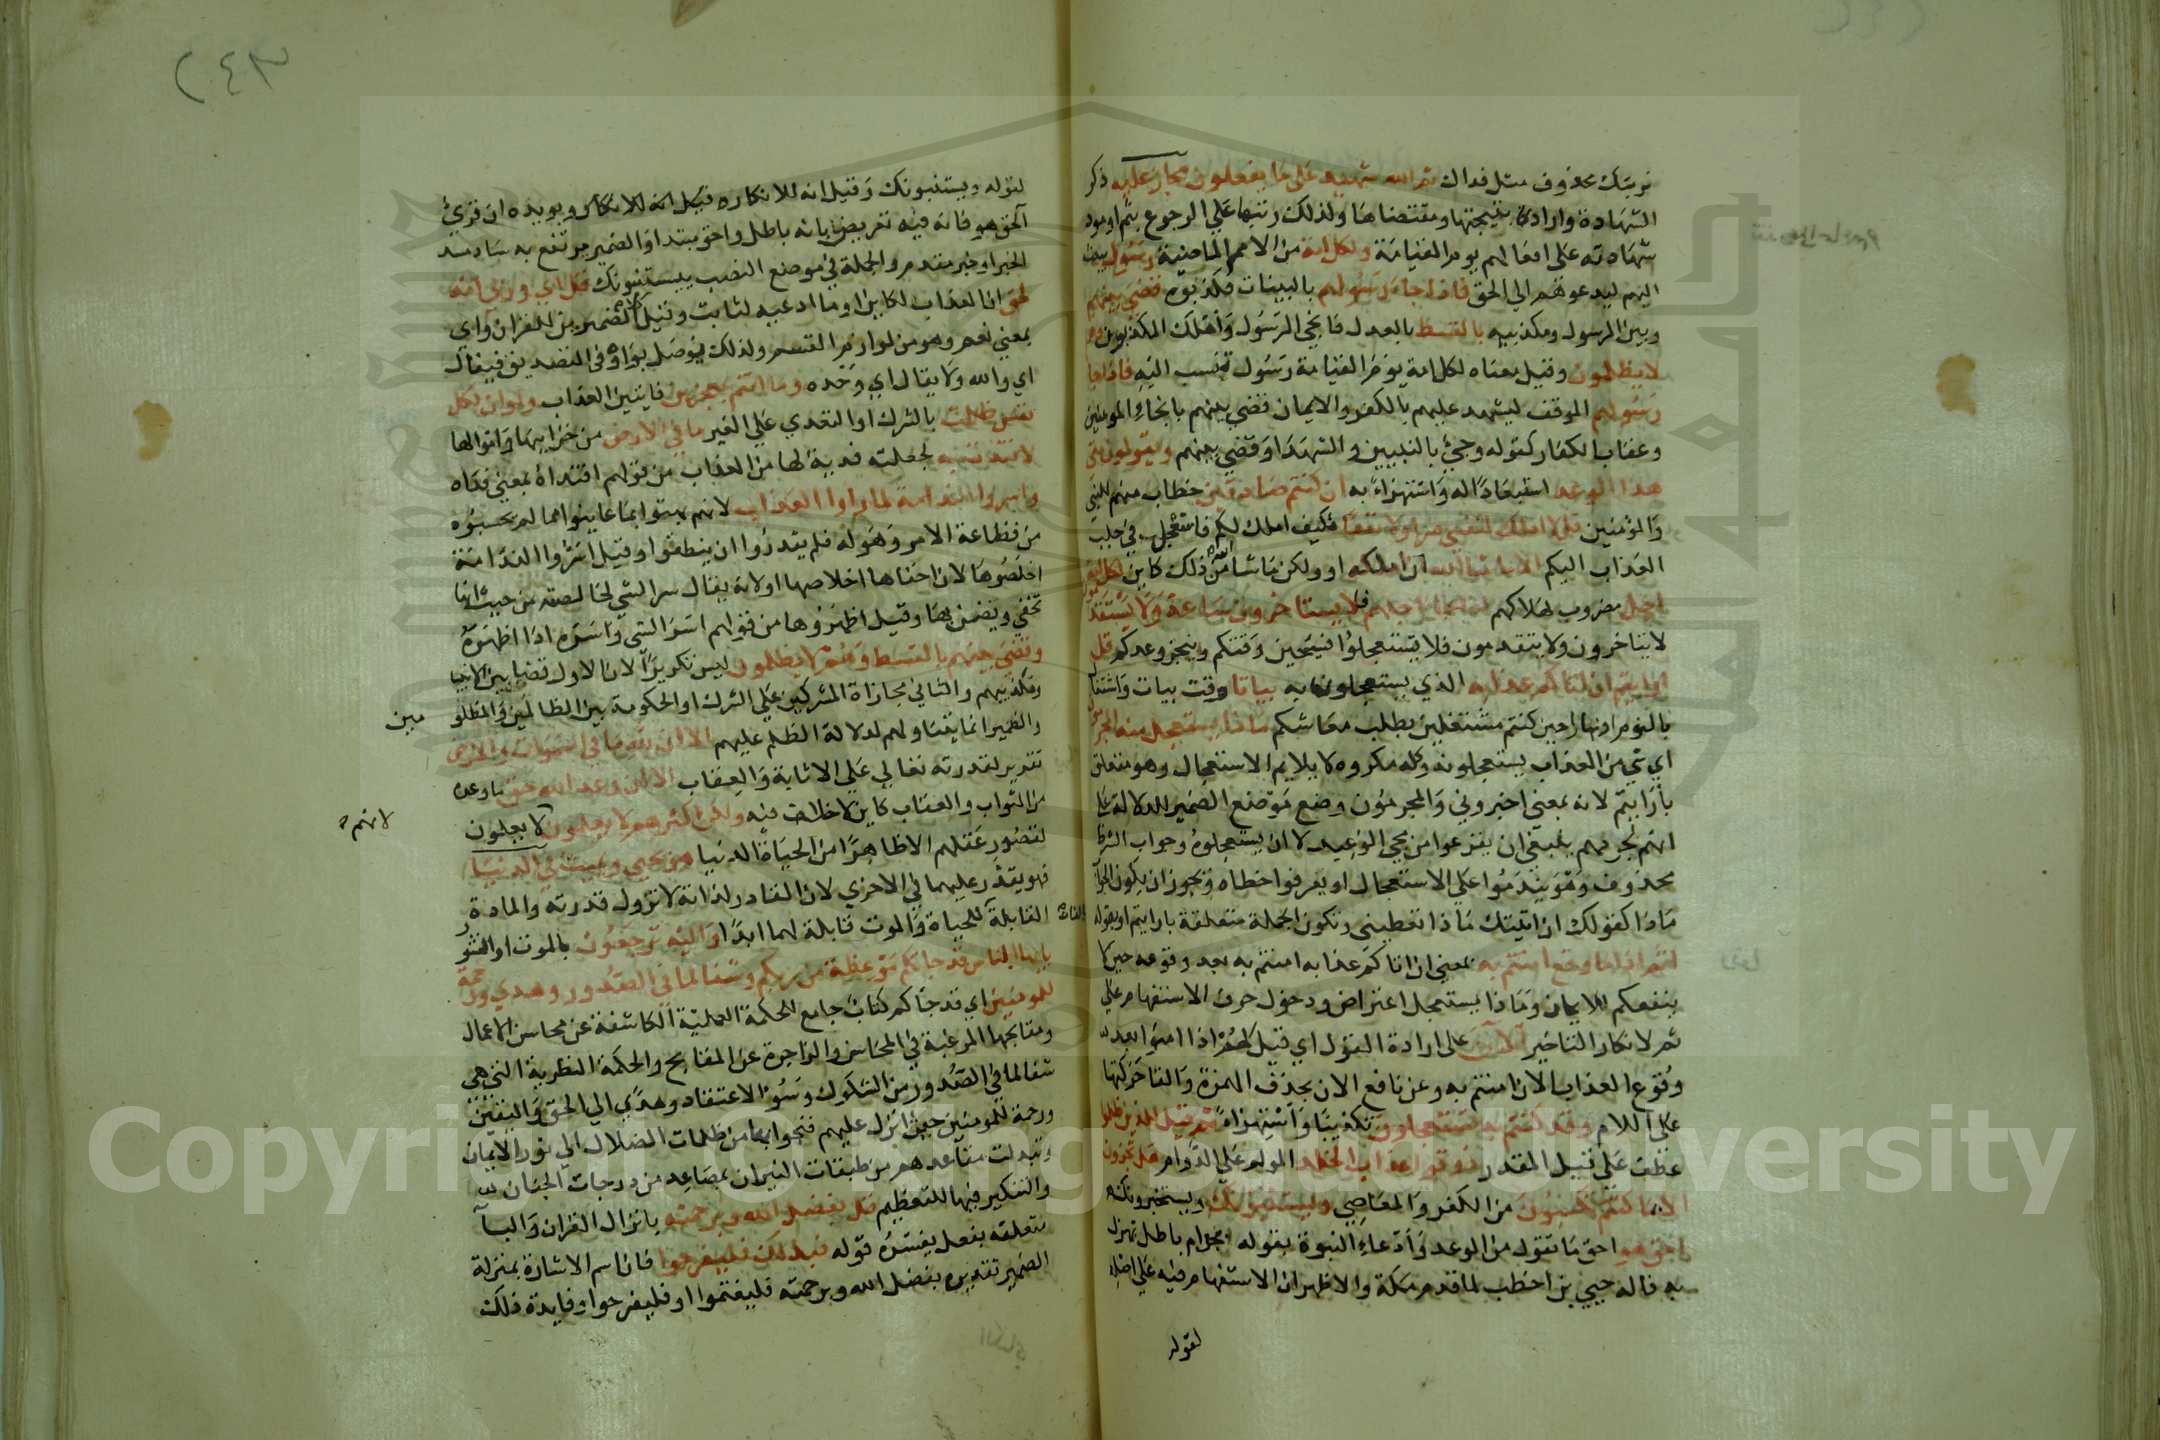 نرينك محذوف مثل فذاك ثم الله شهيد على ما يفعلون مجاز عليه ذكر
الشهادة واراد نتيجتها ومقتضاها ولذلك رتبها على الرجوع بثم او مود
شهادته على افعالهم يوم القيامة ولكل امة من الامم الماضية رسول يبعث
اليهم ليدعوهم الي الحق فاذا جاء رسولهم بالبينات فكذبوه قضي بينهم
وبين الرسول ومكذبيه بالقسط بالعدل فانجي الرسول واهلك المكذبون وهم
لا يظلمون وقيل معناه لكل امة يوم القيامة رسول تنسب اليه فاذا جا
رسولهم الموقف ليشهد عليهم بالكفر والايمان قضي بينهم بانجاء المومنين
وعقاب الكفار كقوله وجيء بالنبيين والشهدا وقضي بينهم ويقولون متي
هذا الوعد استبعادا له واستهزاء به ان كنتم صادقين خطاب منهم للنبي
والمؤمنين قل لا املك لنفسي ضرا ولا نفعا فكيف املك لكم فاستعجل في جلب
العذاب اليكم الا ما شا الله ان املكه او ولكن ما شا الله من ذلك كاين لكل امة
اجل مضروب لهلاكهم اذا جا اجلهم فلا يستاخرون ساعة ولا يستقدمون
لا يتاخرون ولا يتقدمون فلا تستعجلوا فسيحين وقتكم وينجز وعدكم قل
ارايتم ان اتاكم عذابه الذي يستعجلون به بياتا وقت بيات واشتغال
بالنوم او نهارا حين كنتم مشتغلين بطلب معاشكم ماذا يستعجل منه المجرمون
اي شي من العذاب يستعجلونه وكله مكروه لا يلايم الاستعجال وهو متعلق
بارايتم لانه بمعنى اخبروني والمجرمون وضع موضع الضمير للدلالة على
انهم لجرمهم ينبغي ان يفزعوا من مجي الوعيد لا ان يستعجلوه وجواب الشرط
محذوف وهو يندموا علي الاستعجال او يعرفوا خطاه ويجوز ان يكون الجواب
ماذا كقولك ان اتيتك ماذا تعطيني وتكون الجملة متعلقة بارايتم او بقوله
اثم اذا ما وقع امنتم به بمعنى ان اتاكم عذابه امنتم به بعد وقوعه حين لا
ينفعكم الايمان وماذا يستعجل اعتراض ودخول حرف الاستفهام علي
ثم لانكار التاخير آلان على ارادة القول اي قيل لهم اذا امنوا بعد
وقوع العذاب الان امنتم به وعن نافع الان بحذف الهمزة والقا حركتها
على اللام وقد كنتم به تستعجلون تكذيبا واستهزاء ثم قيل للذين ظلموا
عطف علي قيل المقدر ذوقوا عذاب الخلد المولم علي الدوام هل تجزون
الا بما كنتم تكسبون من الكفر والمعاصي ويستنبونك ويستخبرونك
احق هو احق ما تقول من الوعد وادعاء النبوة بقوله ابجد ام باطل تهزل
به قاله حيي بن اخطب لما قدم مكة والاظهر ان الاستفهام فيه علي اصله
لقوله
لقوله ويستنبونك وقيل انه للانكاره قيل انه للانكار ويويده ان قرئ
آلحق هو فانه فيه تعريض بانه باطل واحق مبتدا والضمير مرتفع به ساد مسد
الخبر او خبر مقدم والجملة في موضع النصب بيستنبونك قل اي وربي انه
لحق ان العذاب لكاين او ما ادعيه لثابت وقيل كلا الضميرين للقران واي
بمعني نعم وهو من لوازم القسم ولذلك يوصل بواوه في التصديق فيقال
اي والله ولا يقال اي وحده وما انتم بمعجزين فايتين العذاب ولو ان لكل
نفس ظلمت بالشرك او التعدي علي الغير ما في الارض من خزاينها واموالها
لافتدت به لجعلته فدية لها من العذاب من قولهم افتداه بمعني فداه
واسروا الندامة لما راوا العذاب لانهم بهتوا بما عاينوا مما لم يحسبوه
من فظاعة الامر وهوله فلم يقدروا ان ينطقوا وقيل اسروا الندامة
اخلصوها لان اخفاها اخلاصها او لانه يقال سر الشي لخالصته من حيث انها
تخفي ويضمن بها وقيل اظهروها من قولهم اسر الشي واسره اذا اظهره
وقضي بينهم بالقسط وهم لا يظلمون ليس تكريرا لان الاول قضا بين الانبيا
ومكذبيهم والثاني مجازاة المشركين علي الشرك او الحكومة بين الظالمين والمظلو
مين
والضمير انما يتناولهم لدلالة الظلم عليهم الا ان لله ما في السموات والارض
تقرير لقدرته تعالي علي الاثابة والعقاب الا ان وعد الله حق ما وعده
من الثواب والعقاب كاين لا خلاف فيه ولكن اكثرهم لا يعلمون لا يعلمون
لانهم
لقصور عقلهم الا ظاهرا من الحياة الدنيا هو يحيي ويميت في الدنيا
فهو يقدر عليهما في الاخري لان القادر لذاته لا تزول قدرته والمادة
بالذات القابلة للحياة والموت قابلة لهما ابدا واليه ترجعون بالموت او النشور
يايها الناس قد جاتكم موعظة من ربكم وشفا لما في الصدور وهدي ورحمة
للمومنين اي قد جاكم كتاب جامع للحكمة العملية الكاشفة عن محاسن الاعمال
ومقابحها المرغبة في المحاسن والزاجرة عن المقابح والحكمة النظرية التي هي
شفا لما في الصدور من الشكوك وسوء الاعتقاد وهدي الي الحق واليقين
ورحمة للمومنين حين انزل عليهم فنجوا بها من ظلمات الضلال الي نور الايمان
وتبدلت مقاعدهم من طبقات النيران بمصاعد من درجات الجنان
والتنكير فيها للتعظيم قل بفضل الله وبرحمته بانزال القران والبا
متعلقة بفعل يفسره قوله فبذلك فليفرحوا فان اسم الاشارة بمنزلة
الضمير تقديره بفضل الله وبرحمته فليعتنوا او فليفرحوا وفايدة ذلك
Copyright © King Saud University